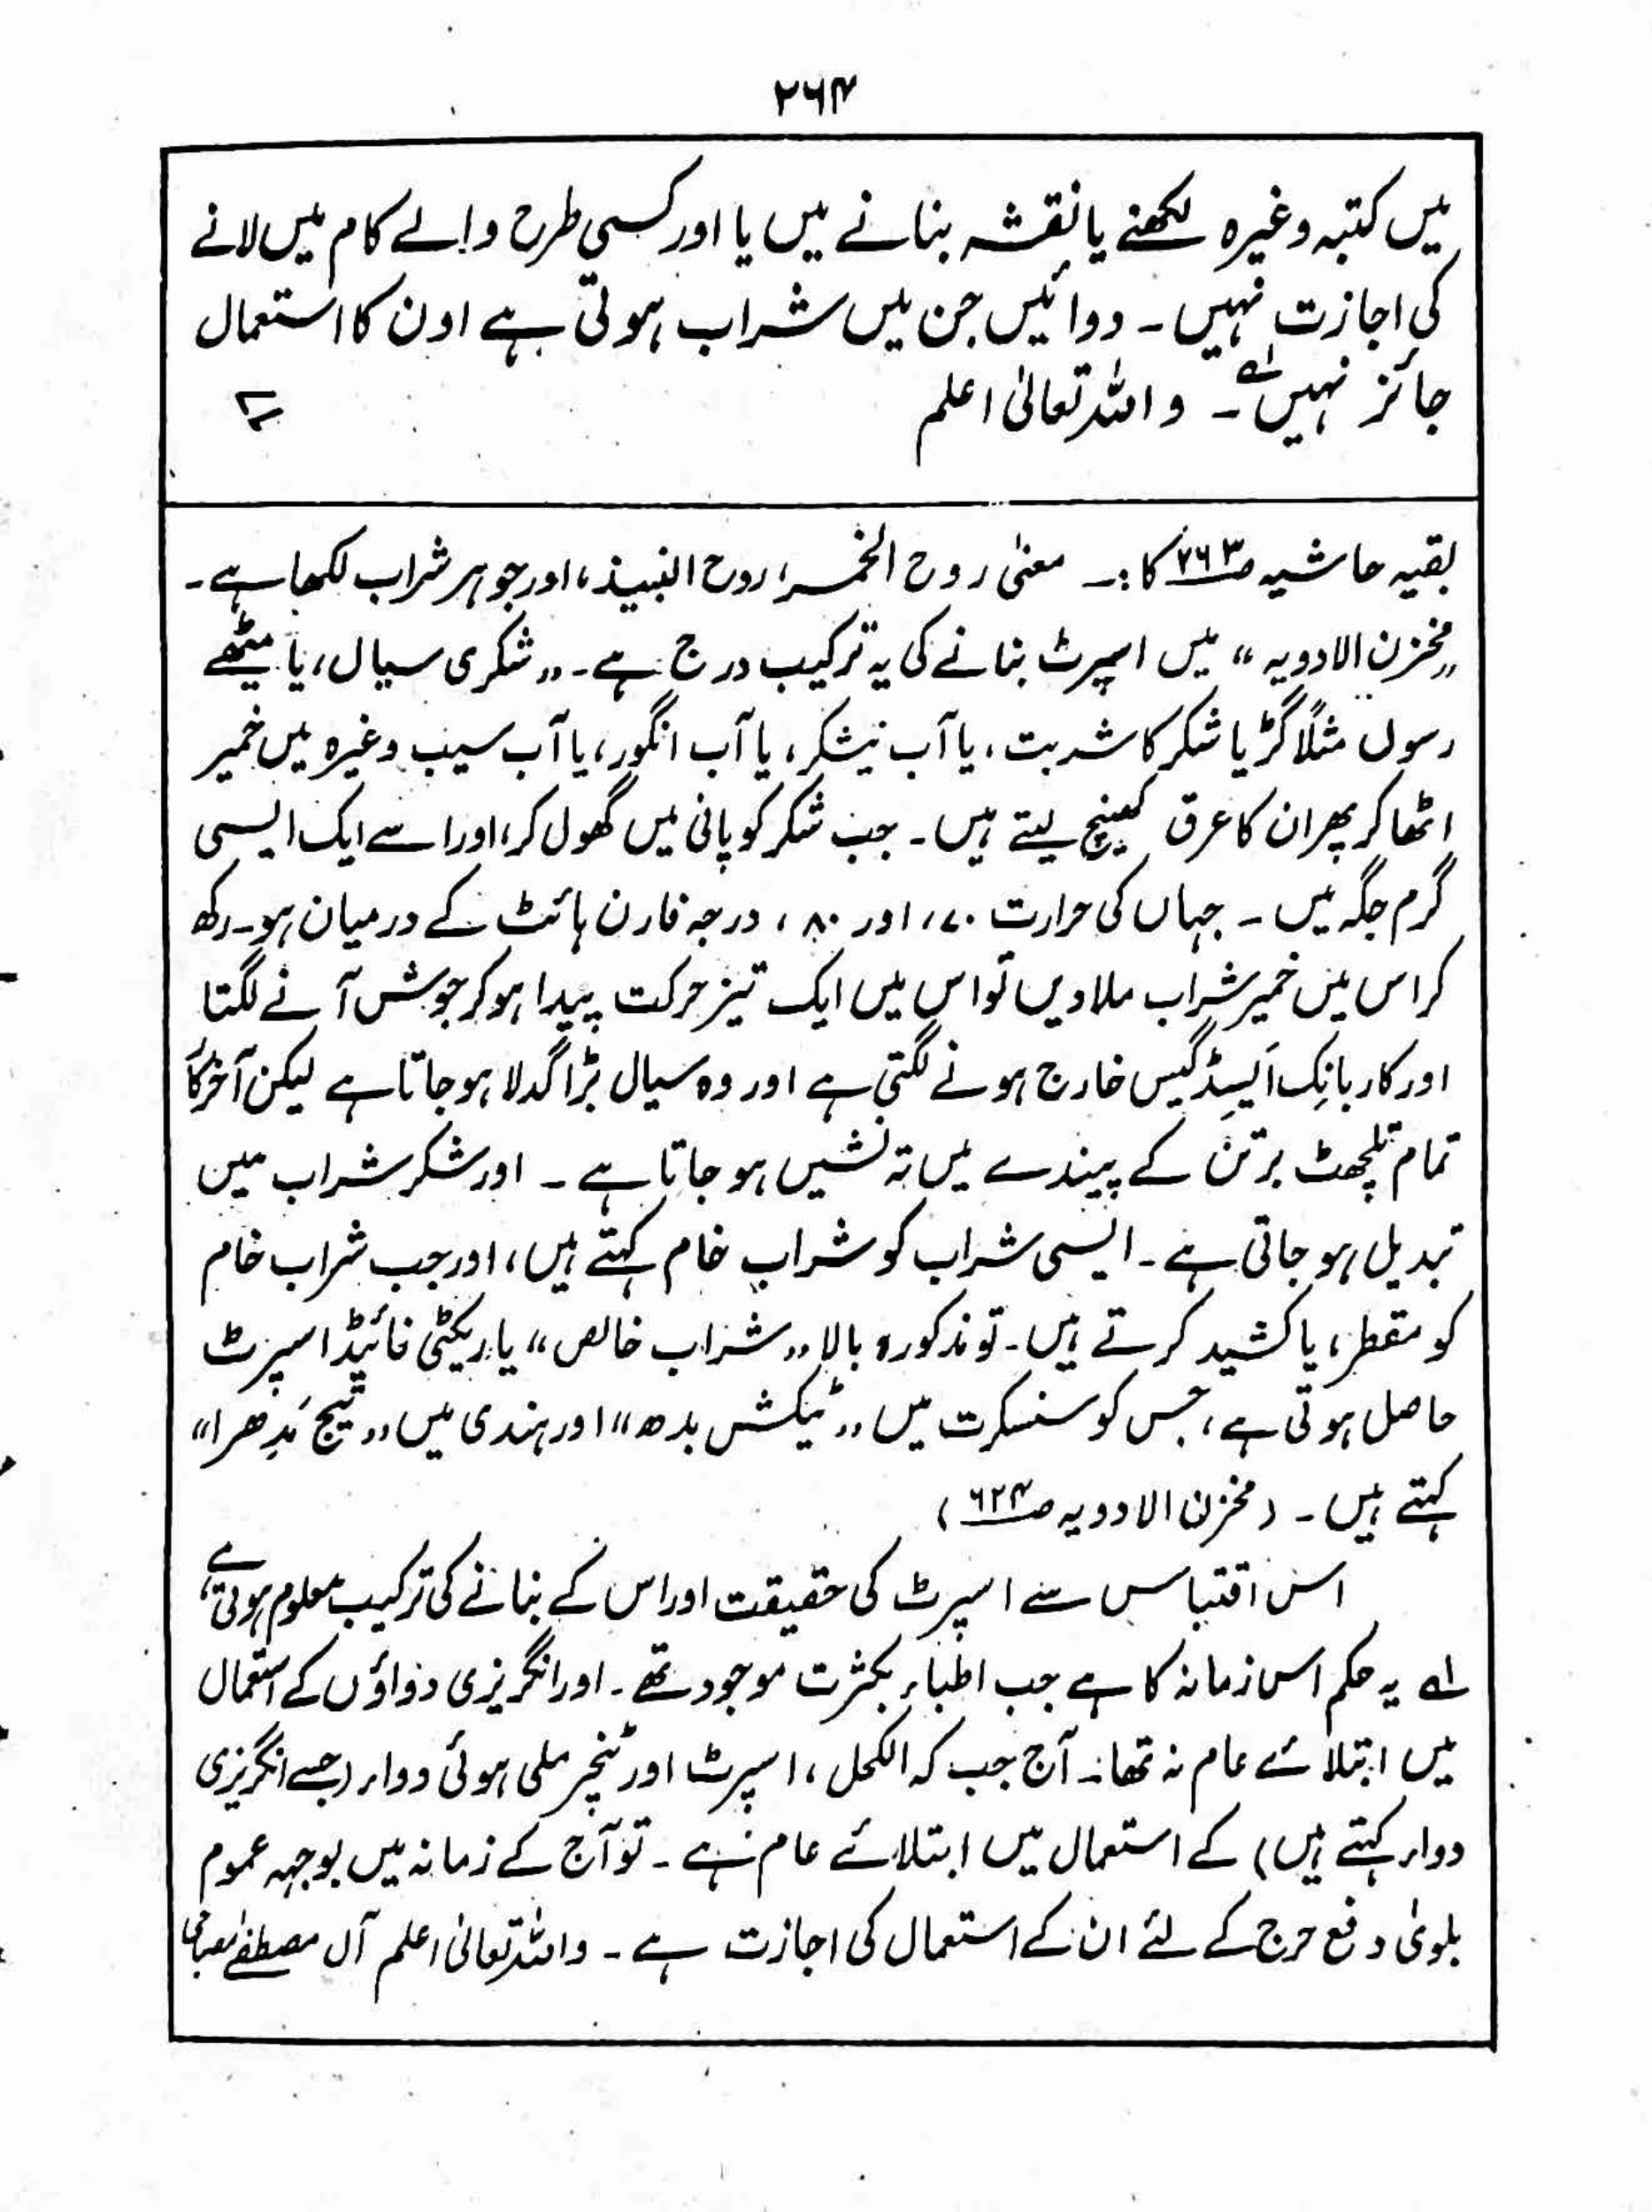 ۲۶۴
میں کتبہ وغیرہ لکھنے یا نقشہ بنانے میں یا اور کسی طرح والے کام میں لانے
کی اجازت نہیں ۔ دوائیں جن میں شراب ہوتی ہے اون کا استعمال
جائز نہیں ؂۱ ۔ واللہ تعالیٰ اعلم
بقیہ حاشیہ ص۲۶۳ کا :۔ معنیٰ روح الخمر، روح النبیذ، اور جوہر شراب لکھا ہے ۔
„مخزن الادویہ“ میں اسپرٹ بنانے کی یہ ترکیب درج ہے ۔ „شکری سیال، یا میٹھے
رسول مثلاً گڑ یا شکر کا شربت، یا آب نیشکر، یا آب انگور، یا آب سیب وغیرہ میں خمیر
اٹھا کر پھر ان کا عرق کھینچ لیتے ہیں ۔ جب شکر کو پانی میں گھول کر، اور اسے ایک ایسی
گرم جگہ میں ۔ جہاں کی حرارت ۷۰، اور ۸۰، درجہ فارن ہائٹ کے درمیان ہو ۔ رکھ
کر اس میں خمیر شراب ملادیں تو اس میں ایک تیز حرکت پیدا ہو کر جوش آنے لگتا
اور کاربانِک اَیسِڈ گیس خارج ہونے لگتی ہے اور وہ سیال بڑا گدلا ہوجاتا ہے لیکن آخر کار
تمام تلچھٹ برتن کے پیندے میں تہ نشیں ہو جاتا ہے ۔ اور شکر شراب میں
تبدیل ہو جاتی ہے ۔ ایسی شراب کو شراب خام کہتے ہیں، اور جب شراب خام
کو مقطر، یا کشید کرتے ہیں ۔ تو مذکورہ بالا „شراب خالص“ یا ریکٹی فائیڈ اسپرٹ
حاصل ہوتی ہے، جس کو سنسکرت میں „ٹیکشس بدھ“ اور ہندی میں „تیج مَدِھرا“
کہتے ہیں ۔ (مخزن الادویہ ص۶۲۴)
اس اقتباس سے اسپرٹ کی حقیقت اور اس کے بنانے کی ترکیب معلوم ہوتی ہے،
؂۱ یہ حکم اس زمانہ کا ہے جب اطباء بکثرت موجود تھے ۔ اور انگریزی دواؤں کے استعمال
میں ابتلائے عام نہ تھا ۔ آج جب کہ الکحل، اسپرٹ اور ٹنچر ملی ہوئی دواء (جسے انگریزی
دواء کہتے ہیں) کے استعمال میں ابتلائے عام ہے ۔ تو آج کے زمانہ میں بوجہہ عموم
بلویٰ دفع حرج کے لئے ان کے استعمال کی اجازت ہے ۔ واللہ تعالیٰ اعلم آل مصطفےٰ مصباحی